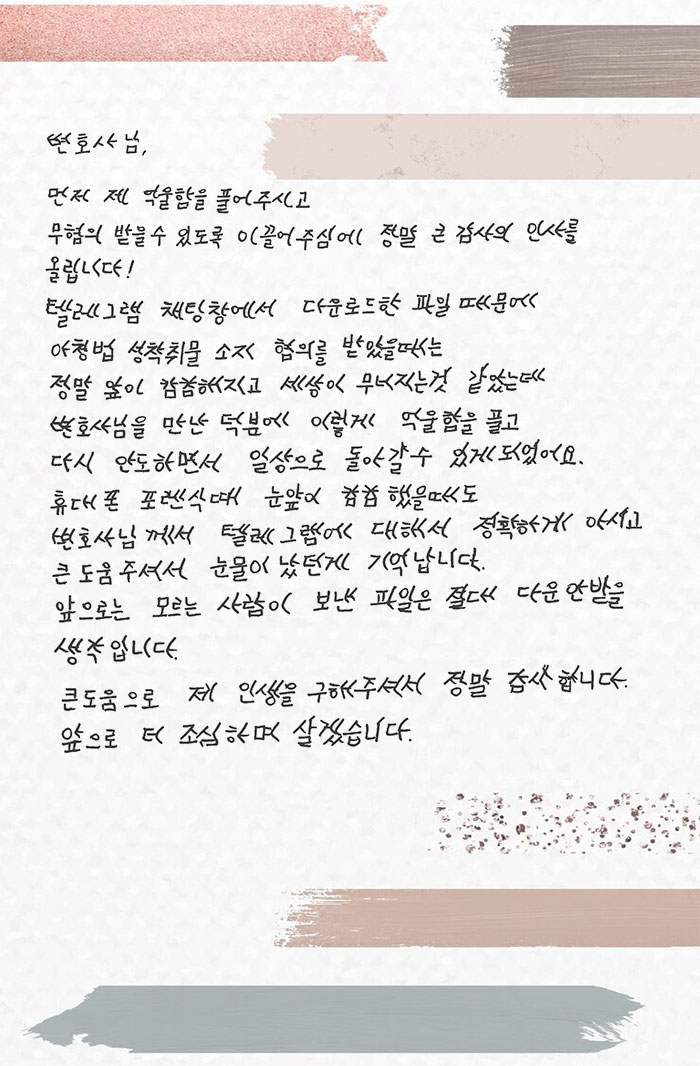 변호사님,
먼저 제 억울함을 풀어주시고
무혐의 받을수 있도록 이끌어주심에 정말 큰 감사의 인사를
올립니다!
텔레그램 채팅창에서 다운로드한 파일 때문에
아청법 성착취물 소지 혐의를 받았을때는
정말 앞이 캄캄해지고 세상이 무너지는것 같았는데
변호사님을 만난 덕분에 이렇게 억울함을 풀고
다시 안도하면서 일상으로 돌아갈수 있게되었어요.
휴대폰 포렌식때 눈앞이 캄캄했을때도
변호사님께서 텔레그램에 대해서 정확하게 아시고
큰도움주셔서 눈물이 났던게 기억납니다.
앞으로는 모르는 사람이 보낸 파일은 절대 다운안받을
생각입니다.
큰도움으로 제 인생을 구해주셔서 정말 감사합니다.
앞으로 더 조심하며 살겠습니다.